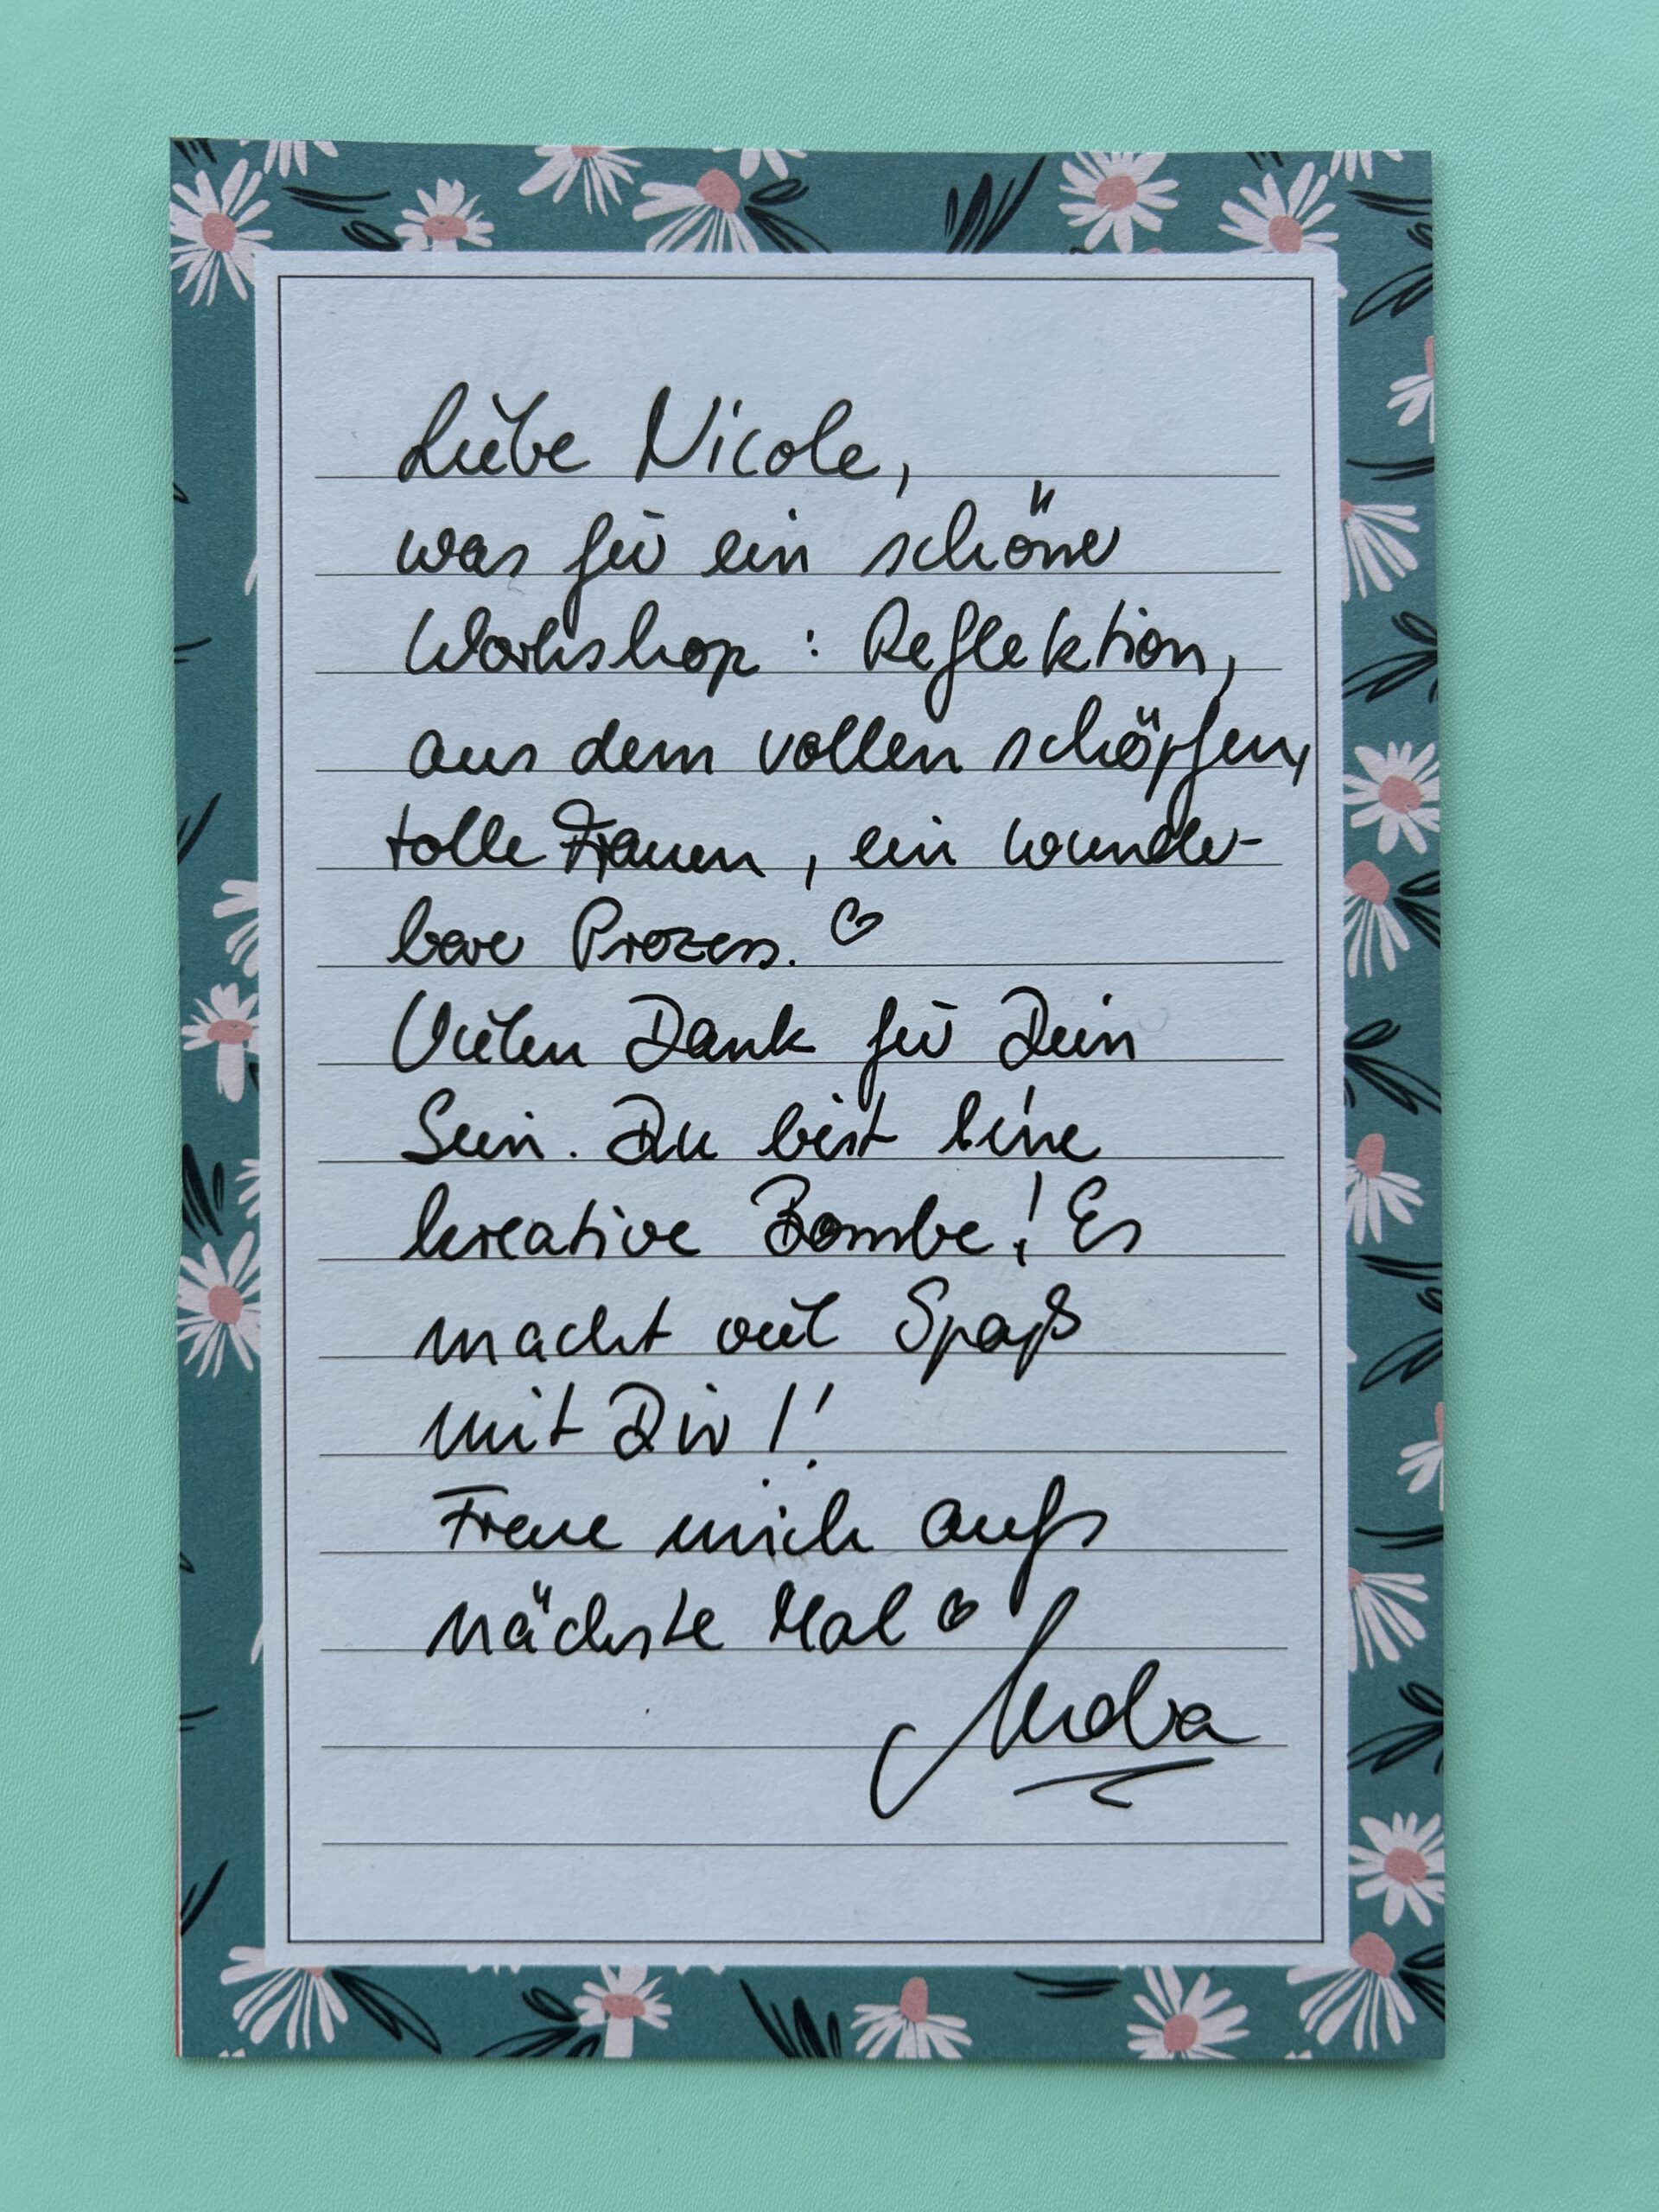 Liebe Nicole,
was für ein schöner
Workshop : Reflektion,
aus dem vollen schöpfen,
tolle Frauen, ein wunder-
barer Prozess. ♡
Vielen Dank für Dein
Sein. Du bist eine
kreative Bombe! Es
macht viel Spaß
mit Dir!!
Freue mich aufs
nächste Mal ♡